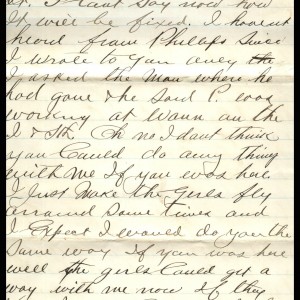 it. I cant say now how
it will be fixed. I havent
heard from Phillips since
I wrote to you aney
I asked the man where he
had gone & he said P. was
working at Wann on the
I & . Oh no I dont think
you Could do any thing
with me if you was here
I Just make the girls fly
arround some times and
I Expect I would do you the
same way if you was here
well if the girls Could get a
way with me now if they